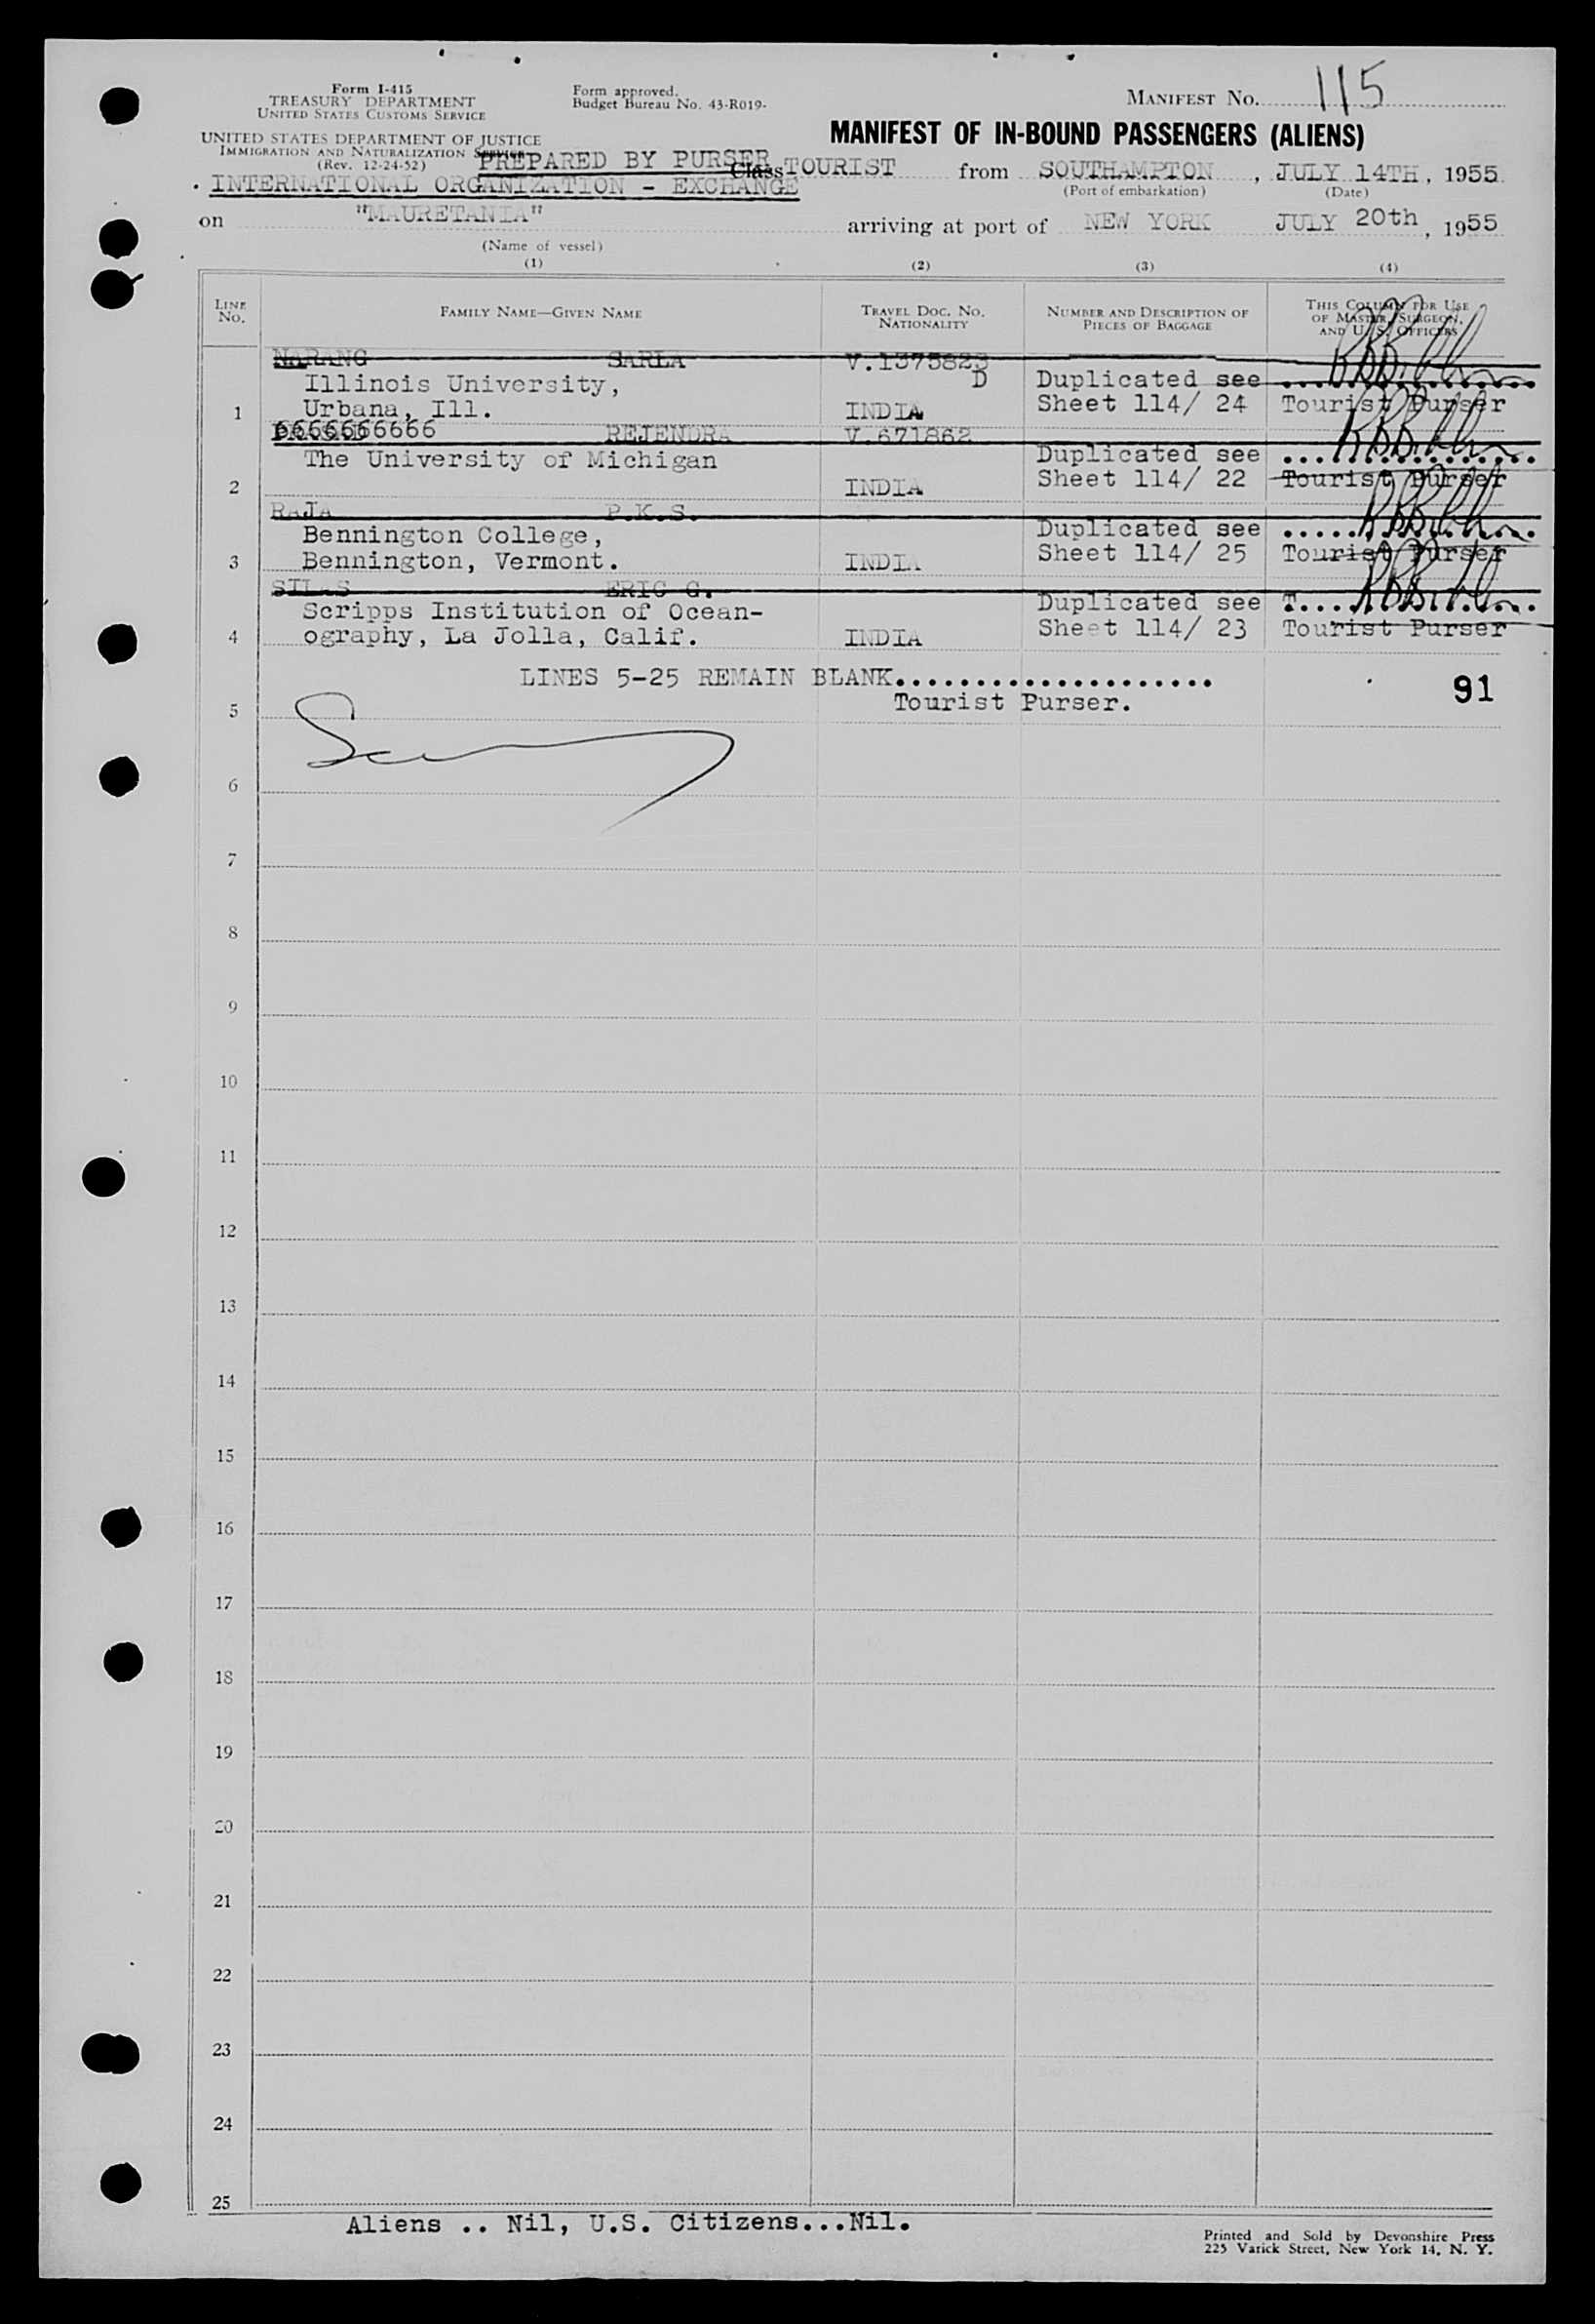 Form I-415
TREASURY DEPARTMENT
UNITED STATES CUSTOMS SERVICE
Form approved.
Budget Bureau No. 43-R019-
MANIFEST NO. 115
UNITED STATES DEPARTMENT OF JUSTICE
IMMIGRATION AND NATURALIZATION SERVICE
(Rev. 12-24-52)
MANIFEST OF IN-BOUND PASSENGERS (ALIENS)
PREPARED BY PURSER
INTERNATIONAL ORGANIZATION - EXCHANGE
Class TOURIST from SOUTHAMPTON, JULY 14TH, 1955
(Port of embarkation) (Date)
on "MAURETANIA" arriving at port of NEW YORK JULY 20th, 1955
(Name of vessel)
(1) (2) (3) (4)
LINE NO.
FAMILY NAME—GIVEN NAME
TRAVEL DOC. NO.
NATIONALITY
NUMBER AND DESCRIPTION OF
PIECES OF BAGGAGE
THIS COLUMN FOR USE
OF MASTER, SURGEON,
AND U. S. OFFICERS
NARANG SARLA V.1375823
Illinois University, D Duplicated see
1 Urbana, Ill. INDIA Sheet 114/ 24 Tourist Purser
6666666666 REJENDRA V.671862
The University of Michigan Duplicated see
2 INDIA Sheet 114/ 22 Tourist Purser
RAJA P.K.S.
Bennington College, Duplicated see
3 Bennington, Vermont. INDIA Sheet 114/ 25 Tourist Purser
SILAS ERIC G.
Scripps Institution of Ocean- Duplicated see
4 ography, La Jolla, Calif. INDIA Sheet 114/ 23 Tourist Purser
LINES 5-25 REMAIN BLANK.....................
91
Tourist Purser.
5
6
7
8
9
10
11
12
13
14
15
16
17
18
19
20
21
22
23
24
25
Aliens .. Nil, U.S. Citizens...Nil.
Printed and Sold by Devonshire Press
225 Varick Street, New York 14, N. Y.